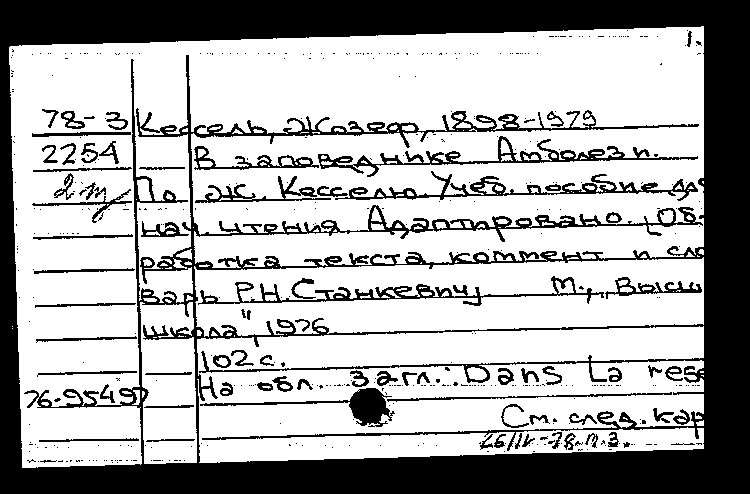 1.
78-3 Кессель, Жозеф, 1898-1979
2254 В заповеднике Амболези.
2 По Ж. Кесселю. Учеб. пособие для
нач. чтения. Адаптировано. [Об-
работка текста, коммент и сло
варь Р.Н. Станкевич] М., „Высш
школа", 1976
102 с.
76-95497 На обл. загл.: Dans La rese
См. след. кар